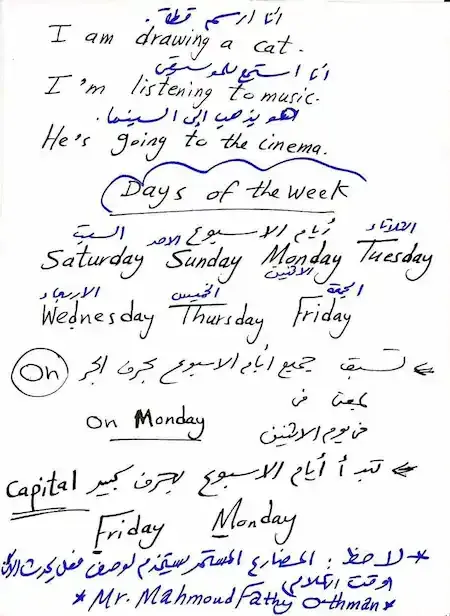 أنا ارسم قطة.
I am drawing a cat.
أنا استمع للموسيقى
I'm listening to music.
هو يذهب إلى السينما.
He's going to the cinema.
Days of the week
أيام الاسبوع
السبت الاحد الاثنين الثلاثاء
Saturday Sunday Monday Tuesday
الاربعاء الخميس الجمعة
Wednesday Thursday Friday
تسبق جميع أيام الاسبوع بحرف الجر On
بمعنى فى
On Monday فى يوم الاثنين
تبدأ أيام الاسبوع بحرف كبير Capital
Friday Monday
* لاحظ: المضارع المستمر يستخدم لوصف فعل يحدث الآن
وقت الكلام
* Mr. Mahmoud Fathy Othman *